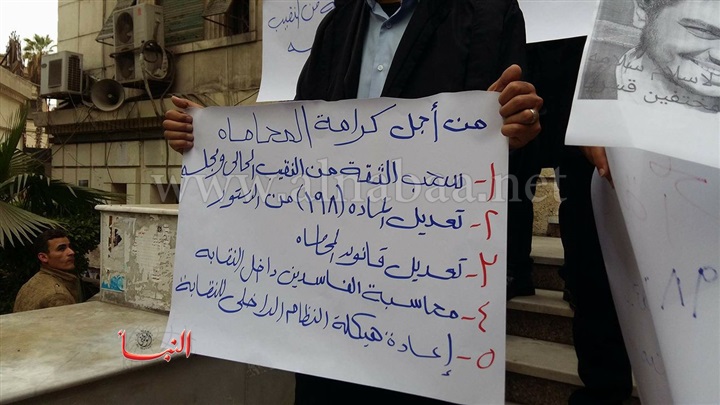 من النقيب
من أجل كرامة المحاماه
١- سحب الثقة من النقيب الحالى ومجلسه
٢- تعديل الماده (١٩٨) من الدستور
٣- تعديل قانون المحاماه
٤- محاسبة الفاسدين داخل النقابه
٥- إعادة هيكلة النظام الداخلى للنقابة
www.alnabaa.net
النبأ